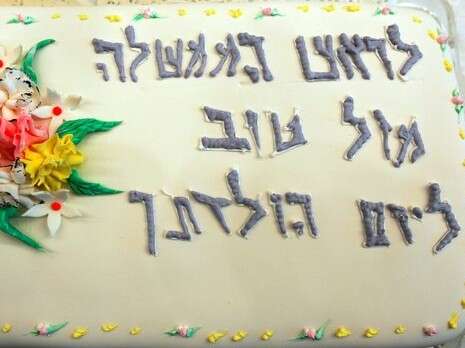 לראש הממשלה
מזל טוב
ליום הולדתך